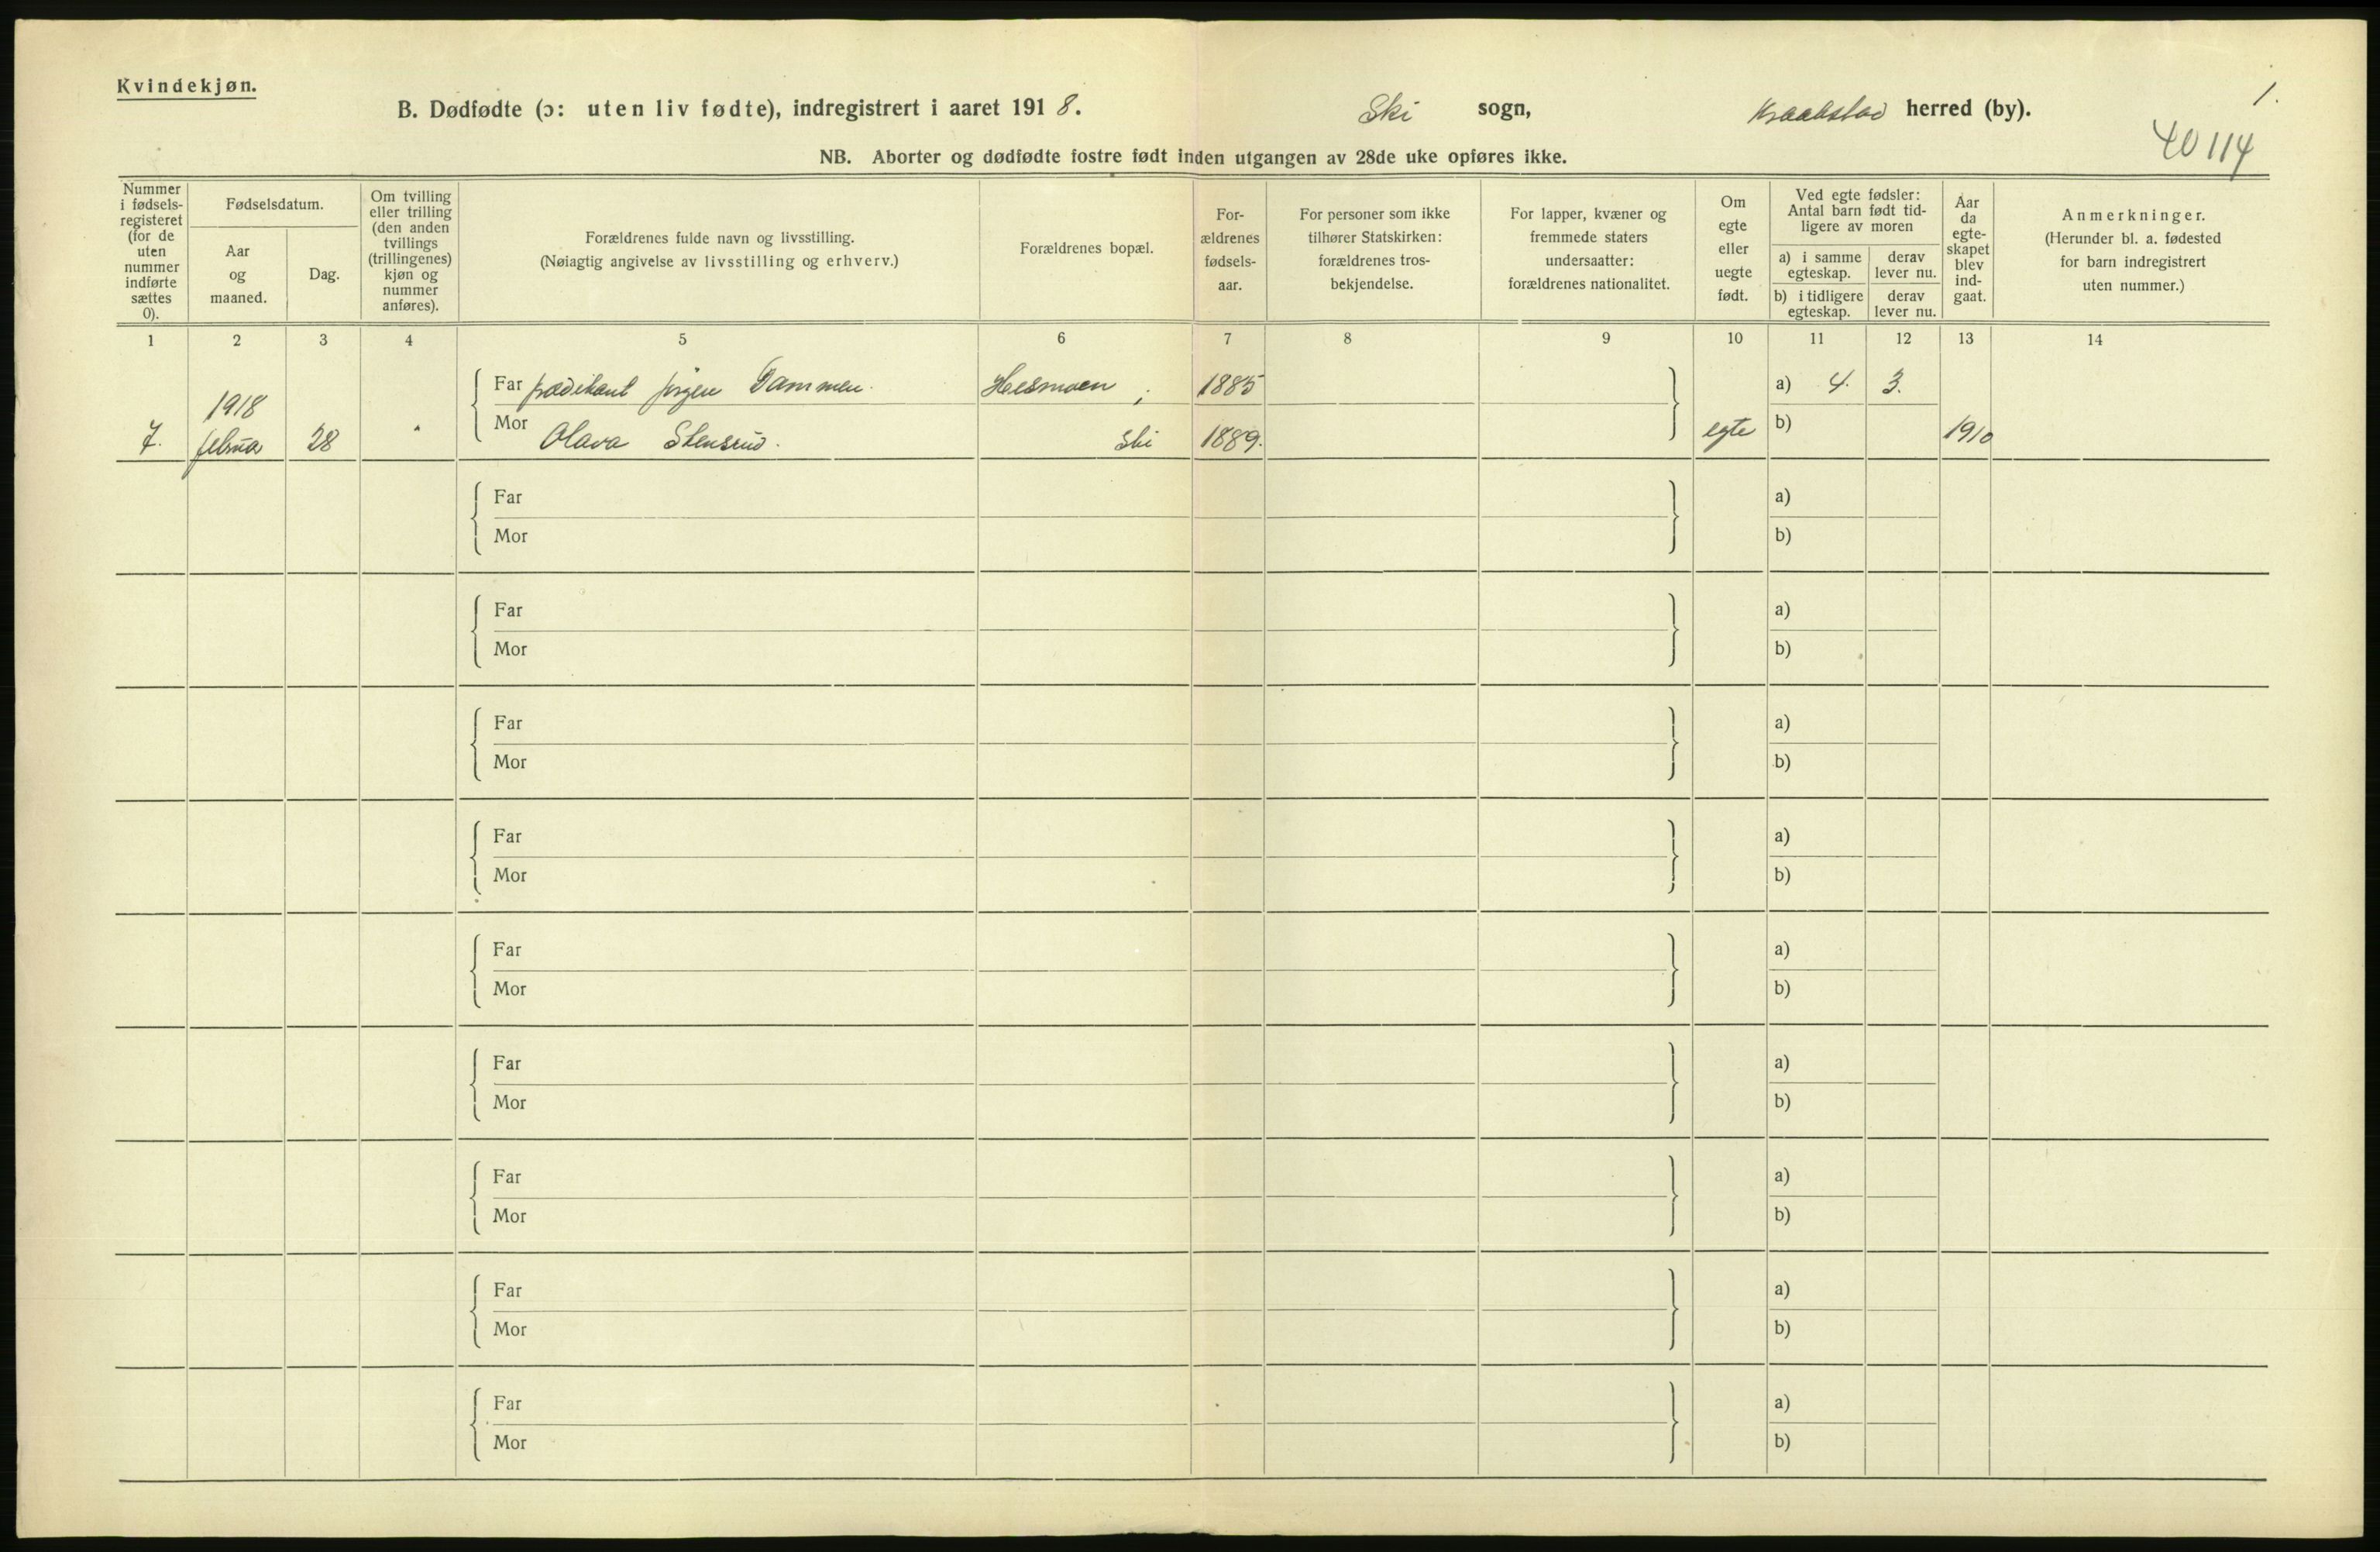 Kvindekjøn.
B. Dødfødte (ɔ: uten liv fødte), indregistrert i aaret 1918. Ski sogn, Kraakstad herred (by).
1.
40114
NB. Aborter og dødfødte fostre født inden utgangen av 28de uke opføres ikke.
Nummer
i fødsels-
registeret
(for de
uten
nummer
indførte
sættes
0).
Fødselsdatum.
Aar
og
maaned.
Dag.
Om tvilling
eller trilling
(den anden
tvillings
(trillingenes)
kjøn og
nummer
anføres).
Forældrenes fulde navn og livsstilling.
(Nøiagtig angivelse av livsstilling og erhverv.)
Forældrenes bopæl.
For-
ældrenes
fødsels-
aar.
For personer som ikke
tilhører Statskirken:
forældrenes tros-
bekjendelse.
For lapper, kvæner og
fremmede staters
undersaatter:
forældrenes nationalitet.
Om
egte
eller
uegte
født.
Ved egte fødsler:
Antal barn født tid-
ligere av moren
a) i samme
egteskap.
derav
lever nu.
b) i tidligere
egteskap.
derav
lever nu.
Aar
da
egte-
skapet
blev
ind-
gaat.
Anmerkninger.
(Herunder bl. a. fødested
for barn indregistrert
uten nummer.)
1 2 3 4 5 6 7 8 9 10 11 12 13 14
Far prædikant Jørgen Dammen. Hesmoen, 1885 a) 4. 3.
1918
7. februar 28 " Mor Olava Stensrud. Ski 1889. egte b) 1910
Far a)
Mor b)
Far a)
Mor b)
Far a)
Mor b)
Far a)
Mor b)
Far a)
Mor b)
Far a)
Mor b)
Far a)
Mor b)
Far a)
Mor b)
Far a)
Mor b)